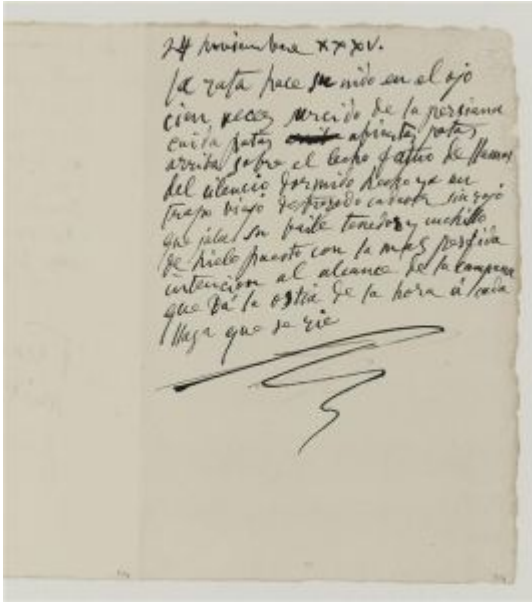 24 noviembre XXXV.
la rata hace su nido en el ojo
cien veces surcido de la persiana
caida patas abiertas patas
arriba sobre el lecho fatuo de llamas
del silencio dormido hecho ya un
trapo viejo destrozado
que jala su baile tenedor y cuchillo
de hielo puesto con la mas perfida
intencion al alcance de la campana
que dá la ostia de la hora á cada
llaga que se rie